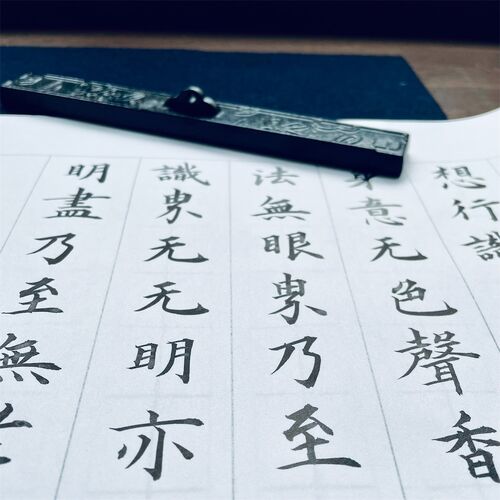 想行識
身意无色聲香
法無眼界乃至
識界无无明亦
明盡乃至無